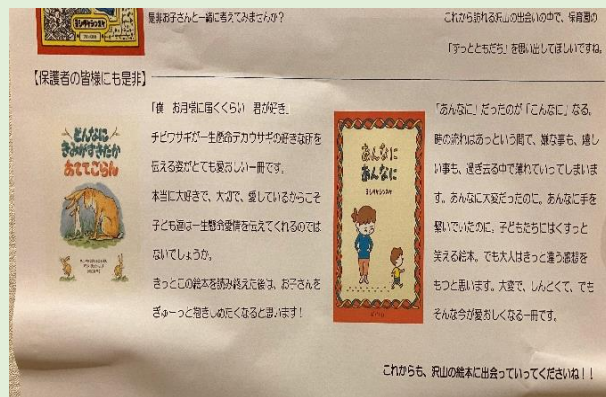 是非お子さんと一緒に考えてみませんか？
これから訪れる沢山の出会いの中で、保育園の
「ずっとともだち」を思い出してほしいですね。
【保護者の皆様にも是非】
どんなに
きみがすきだか
あててごらん
「僕　お月様に届くくらい　君が好き」
チビウサギが一生懸命デカウサギの好きな所を
伝える姿がとても愛おしい一冊です。
本当に大好きで、大切で、愛しているからこそ
子ども達は一生懸命愛情を伝えてくれるのでは
ないでしょうか。
きっとこの絵本を読み終えた後は、お子さんを
ぎゅーっと抱きしめたくなると思います！
あんなに
あんなに
ヨシタケシンスケ
「あんなに」だったのが「こんなに」なる。
時の流れはあっという間で、嫌な事も、嬉し
い事も、過ぎ去る中で薄れていってしまいま
す。あんなに大変だったのに。あんなに手を
繋いでいたのに」子どもたちにはくすっと
笑える絵本。でも大人はきっと違う感想を
もつと思います。大変で、しんどくて、でも
そんな今が愛おしくなる一冊です。
これからも、沢山の絵本に出会っていってくださいね！！